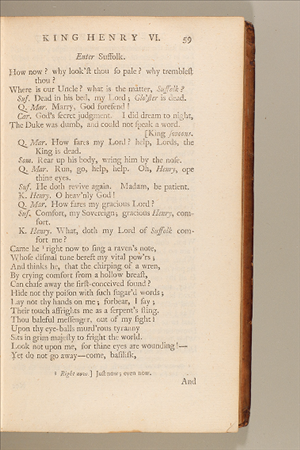 KING HENRY VI. 59
Enter Suffolk.
How now? why look'ſt thou ſo pale? why trembleſt
thou?
Where is our Uncle? what is the matter, Suffolk?
Suf. Dead in his bed, my Lord; Glo'ſter is dead.
Q. Mar. Marry, God forefend!
Car. God's ſecret judgment. I did dream to night,
The Duke was dumb, and could not ſpeak a word.
[King ſwoons.
Q. Mar. How fares my Lord? help, Lords, the
King is dead.
Som. Rear up his body, wring him by the noſe.
Q. Mar. Run, go, help, help. Oh, Henry, ope
thine eyes.
Suf. He doth revive again. Madam, be patient.
K. Henry. O heav'nly God!
Q. Mar. How fares my gracious Lord?
Suf. Comfort, my Sovereign; gracious Henry, com-
fort.
K. Henry. What, doth my Lord of Suffolk com-
fort me?
Came he ¹ right now to ſing a raven's note,
Whoſe diſmal tune bereft my vital pow'rs;
And thinks he, that the chirping of a wren,
By crying comfort from a hollow breaſt,
Can chaſe away the firſt-conceived ſound?
Hide not thy poiſon with ſuch ſugar'd words;
Lay not thy hands on me; forbear, I ſay;
Their touch affrights me as a ſerpent's ſting.
Thou baleful meſſenger, out of my ſight!
Upon thy eye-balls murd'rous tyranny
Sits in grim majeſty to fright the world.
Look not upon me, for thine eyes are wounding!—
Yet do not go away—come, baſiliſk,
¹ Right now] Juſt now; even now.
And